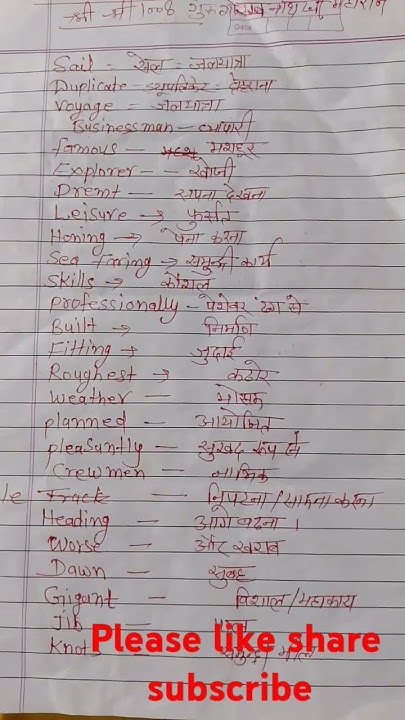 श्री श्री 1008 गुरु गोरख नाथ जी महाराज
Sail = सेल = जलयात्रा
Duplicate - ड्यूपलिकेट = दोहराना
Voyage = जलयात्रा
Businessman - व्यापारी
famous - मशहूर
Explorer - - खोजी
Dremt - सपना देखना
Leisure → फुर्सत
Honing → पैना करना
Sea faring → समुन्द्री कार्य
Skills → कौशल
professionally - पेशेवर ढंग से
Built → निर्माण
Fitting → जुदाई
Roughest → कठोर
Weather - मोसम
planned - आयोजित
pleasuntly - सुखद रूप से
Crewmen - नाभिक
le Track - निपटना / सामना करना
Heading - आगे बढना ।
Worse - और खराब
Dawn - सुबह
Gigant - विशाल / महाकाय
Jib
Knot
Please like share
subscribe